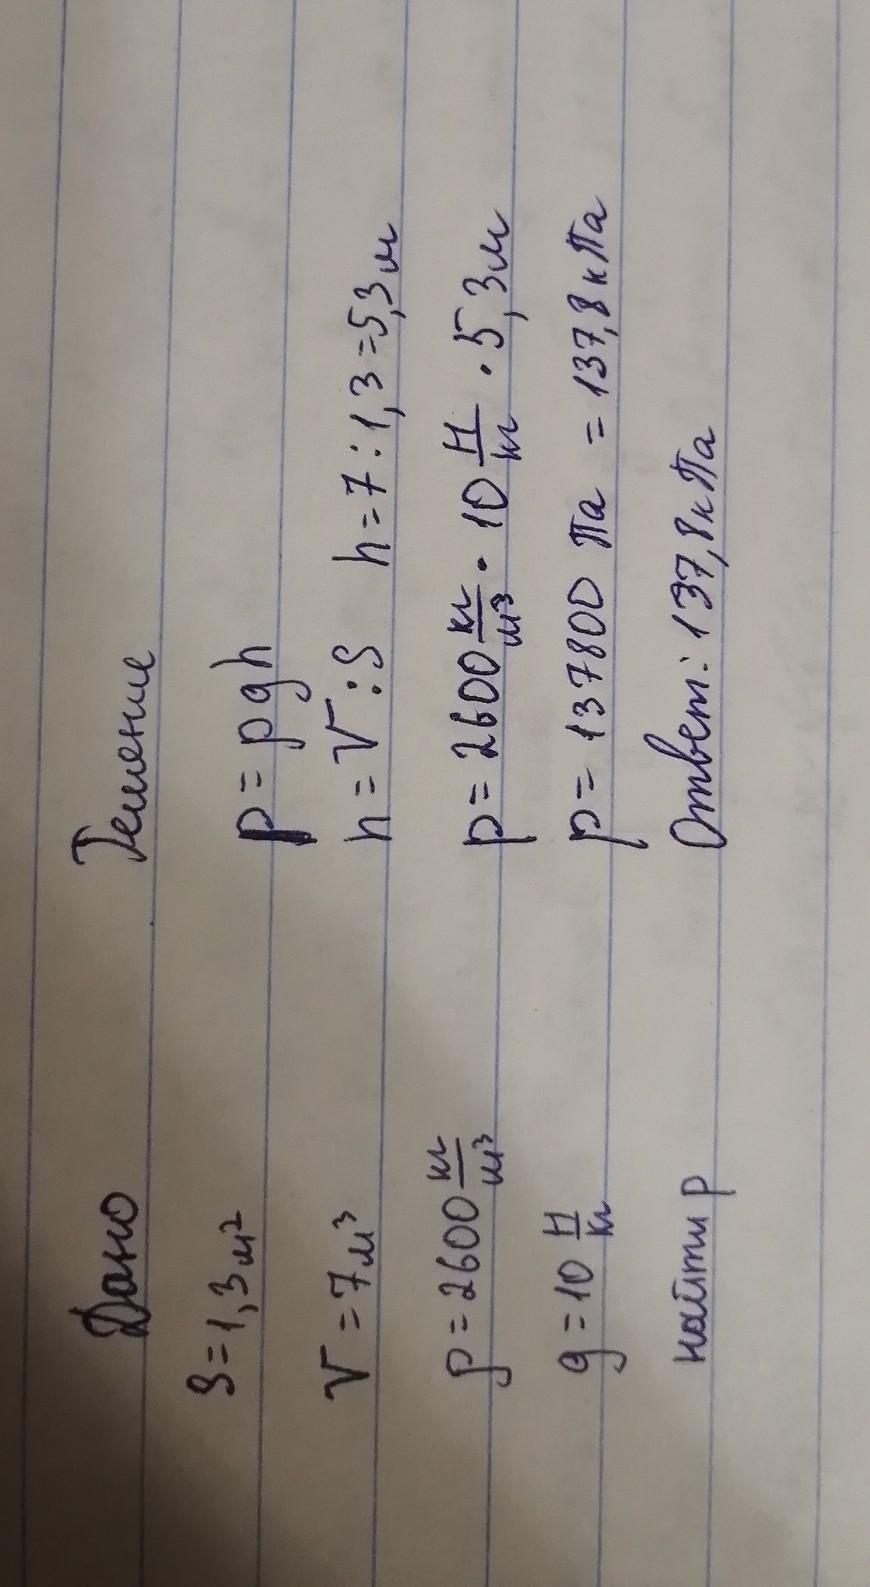 Дано
S=1,3м²
V=7м³
ρ=2600 кг/м³
g=10 Н/кг
найти p
Решение
p=ρgh
h=V:S h=7:1,3=5,3м
p=2600 кг/м³ · 10 Н/кг · 5,3м
p=137800 Па = 137,8кПа
Ответ: 137,8кПа